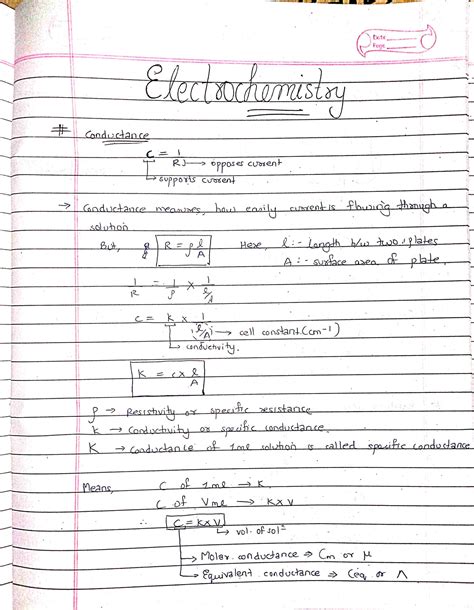 Date
Page
Electrochemistry
# Conductance
C = 1/R → opposes current
↳ supports current
→ Conductance measures, how easily current is flowing through a
solution
But, R = ρ l/A Here, l :- Length b/w two plates
A :- surface area of plate.
1/R = 1/ρ × 1/(l/A)
C = K × 1/(l/A) → cell constant (cm-1)
↳ conductivity.
K = C × l/A
ρ → Resistivity or specific resistance
K → Conductivity or specific conductance
K → Conductance of 1ml solution is called specific conductance
Means, C of 1ml → K.
C of Vml → K×V
∴ C = K×V
↳ vol. of solⁿ
→ Molar conductance ⇒ Cm or μ
→ Equivalent conductance ⇒ Ceq or Λ